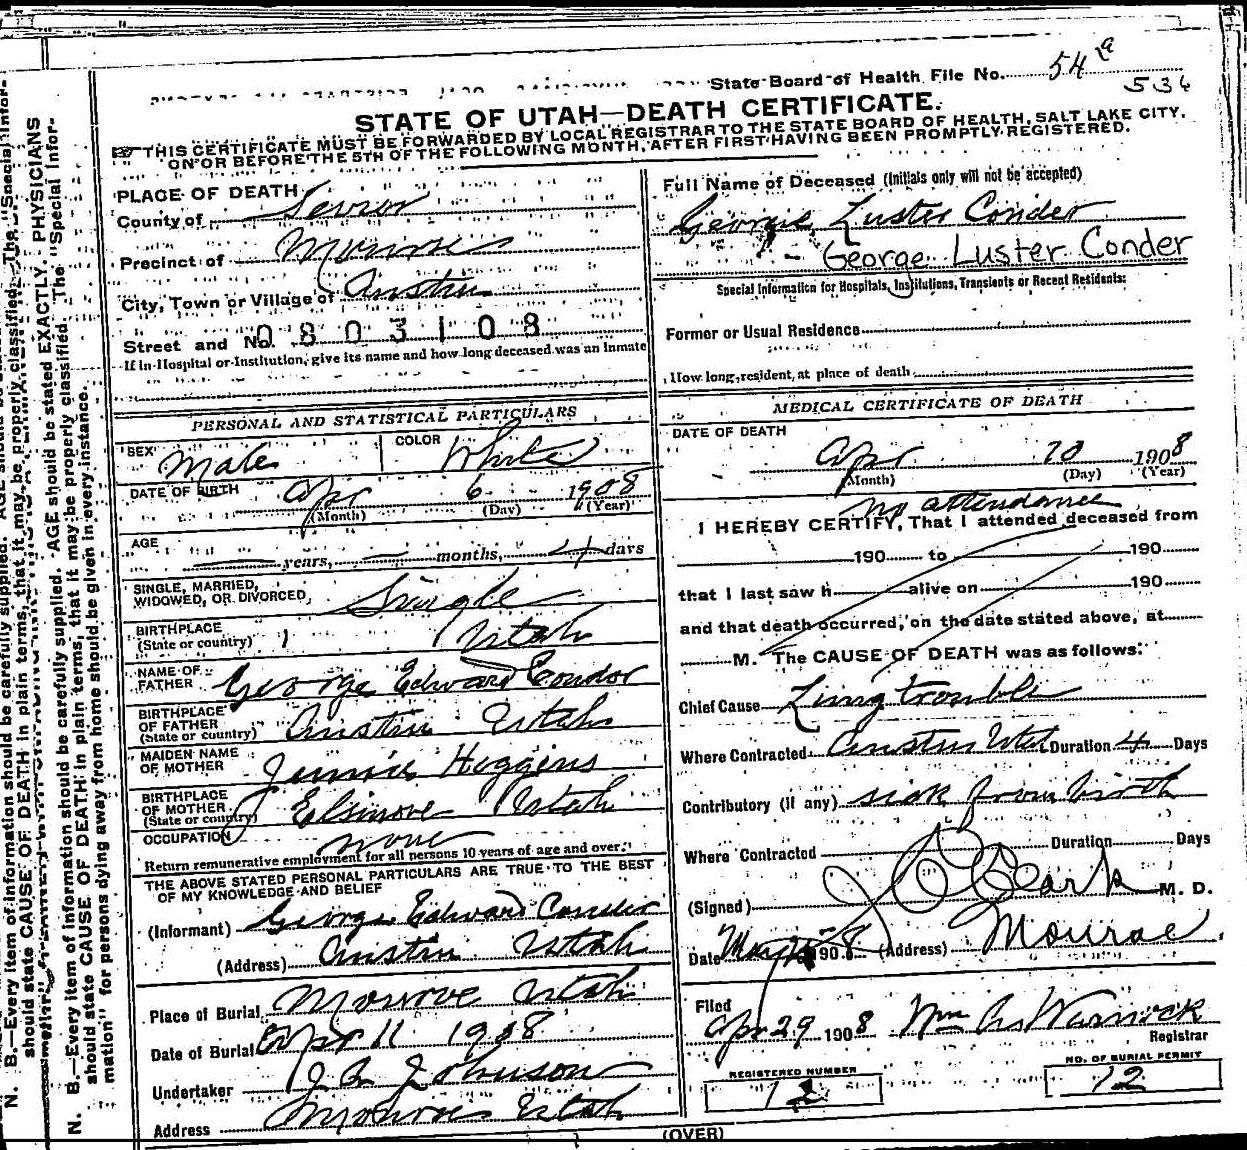 State Board of Health File No. 54 a
536
STATE OF UTAH—DEATH CERTIFICATE.
THIS CERTIFICATE MUST BE FORWARDED BY LOCAL REGISTRAR TO THE STATE BOARD OF HEALTH, SALT LAKE CITY,
ON OR BEFORE THE 5TH OF THE FOLLOWING MONTH, AFTER FIRST HAVING BEEN PROMPTLY REGISTERED.
PLACE OF DEATH
County of Sevier
Precinct of Monroe
City, Town or Village of Austin
Street and No. 0803108
If in Hospital or Institution, give its name and how long deceased was an inmate
Full Name of Deceased (Initials only will not be accepted)
George Luster Conder
George Luster Conder
Special Information for Hospitals, Institutions, Transients or Recent Residents:
Former or Usual Residence
How long resident at place of death
PERSONAL AND STATISTICAL PARTICULARS
SEX Male COLOR White
DATE OF BIRTH Apr 6 1908
(Month) (Day) (Year)
AGE years, months, 4 days
SINGLE, MARRIED,
WIDOWED, OR DIVORCED Single
BIRTHPLACE
(State or country) Utah
NAME OF
FATHER George Edward Condor
BIRTHPLACE
OF FATHER
(State or country) Austin Utah
MAIDEN NAME
OF MOTHER Jennie Higgins
BIRTHPLACE
OF MOTHER
(State or country) Elsinore Utah
OCCUPATION none
Return remunerative employment for all persons 10 years of age and over.
THE ABOVE STATED PERSONAL PARTICULARS ARE TRUE TO THE BEST
OF MY KNOWLEDGE AND BELIEF
(Informant) George Edward Conder
(Address) Austin Utah
Place of Burial Monroe Utah
Date of Burial Apr 11 1908
Undertaker Johnson
Address Monroe Utah
MEDICAL CERTIFICATE OF DEATH
DATE OF DEATH
Apr 10 1908
(Month) (Day) (Year)
no attendance
I HEREBY CERTIFY, That I attended deceased from
190 to 190
that I last saw h alive on 190
and that death occurred, on the date stated above, at
M. The CAUSE OF DEATH was as follows:
Chief Cause Lung trouble
Where Contracted Austin Utah Duration 4 Days
Contributory (if any) sick from birth
Where Contracted Duration Days
(Signed) Clark M. D.
Date May 1908 (Address) Monroe
Filed
Apr 29 1908 Wm Warnock
Registrar
REGISTERED NUMBER
12
NO. OF BURIAL PERMIT
12
(OVER)
N. B.—Every item of information should be carefully supplied. AGE should be stated EXACTLY. PHYSICIANS
should state CAUSE OF DEATH in plain terms, that it may be properly classified. The "Special Infor-
mation" for persons dying away from home should be given in every instance.